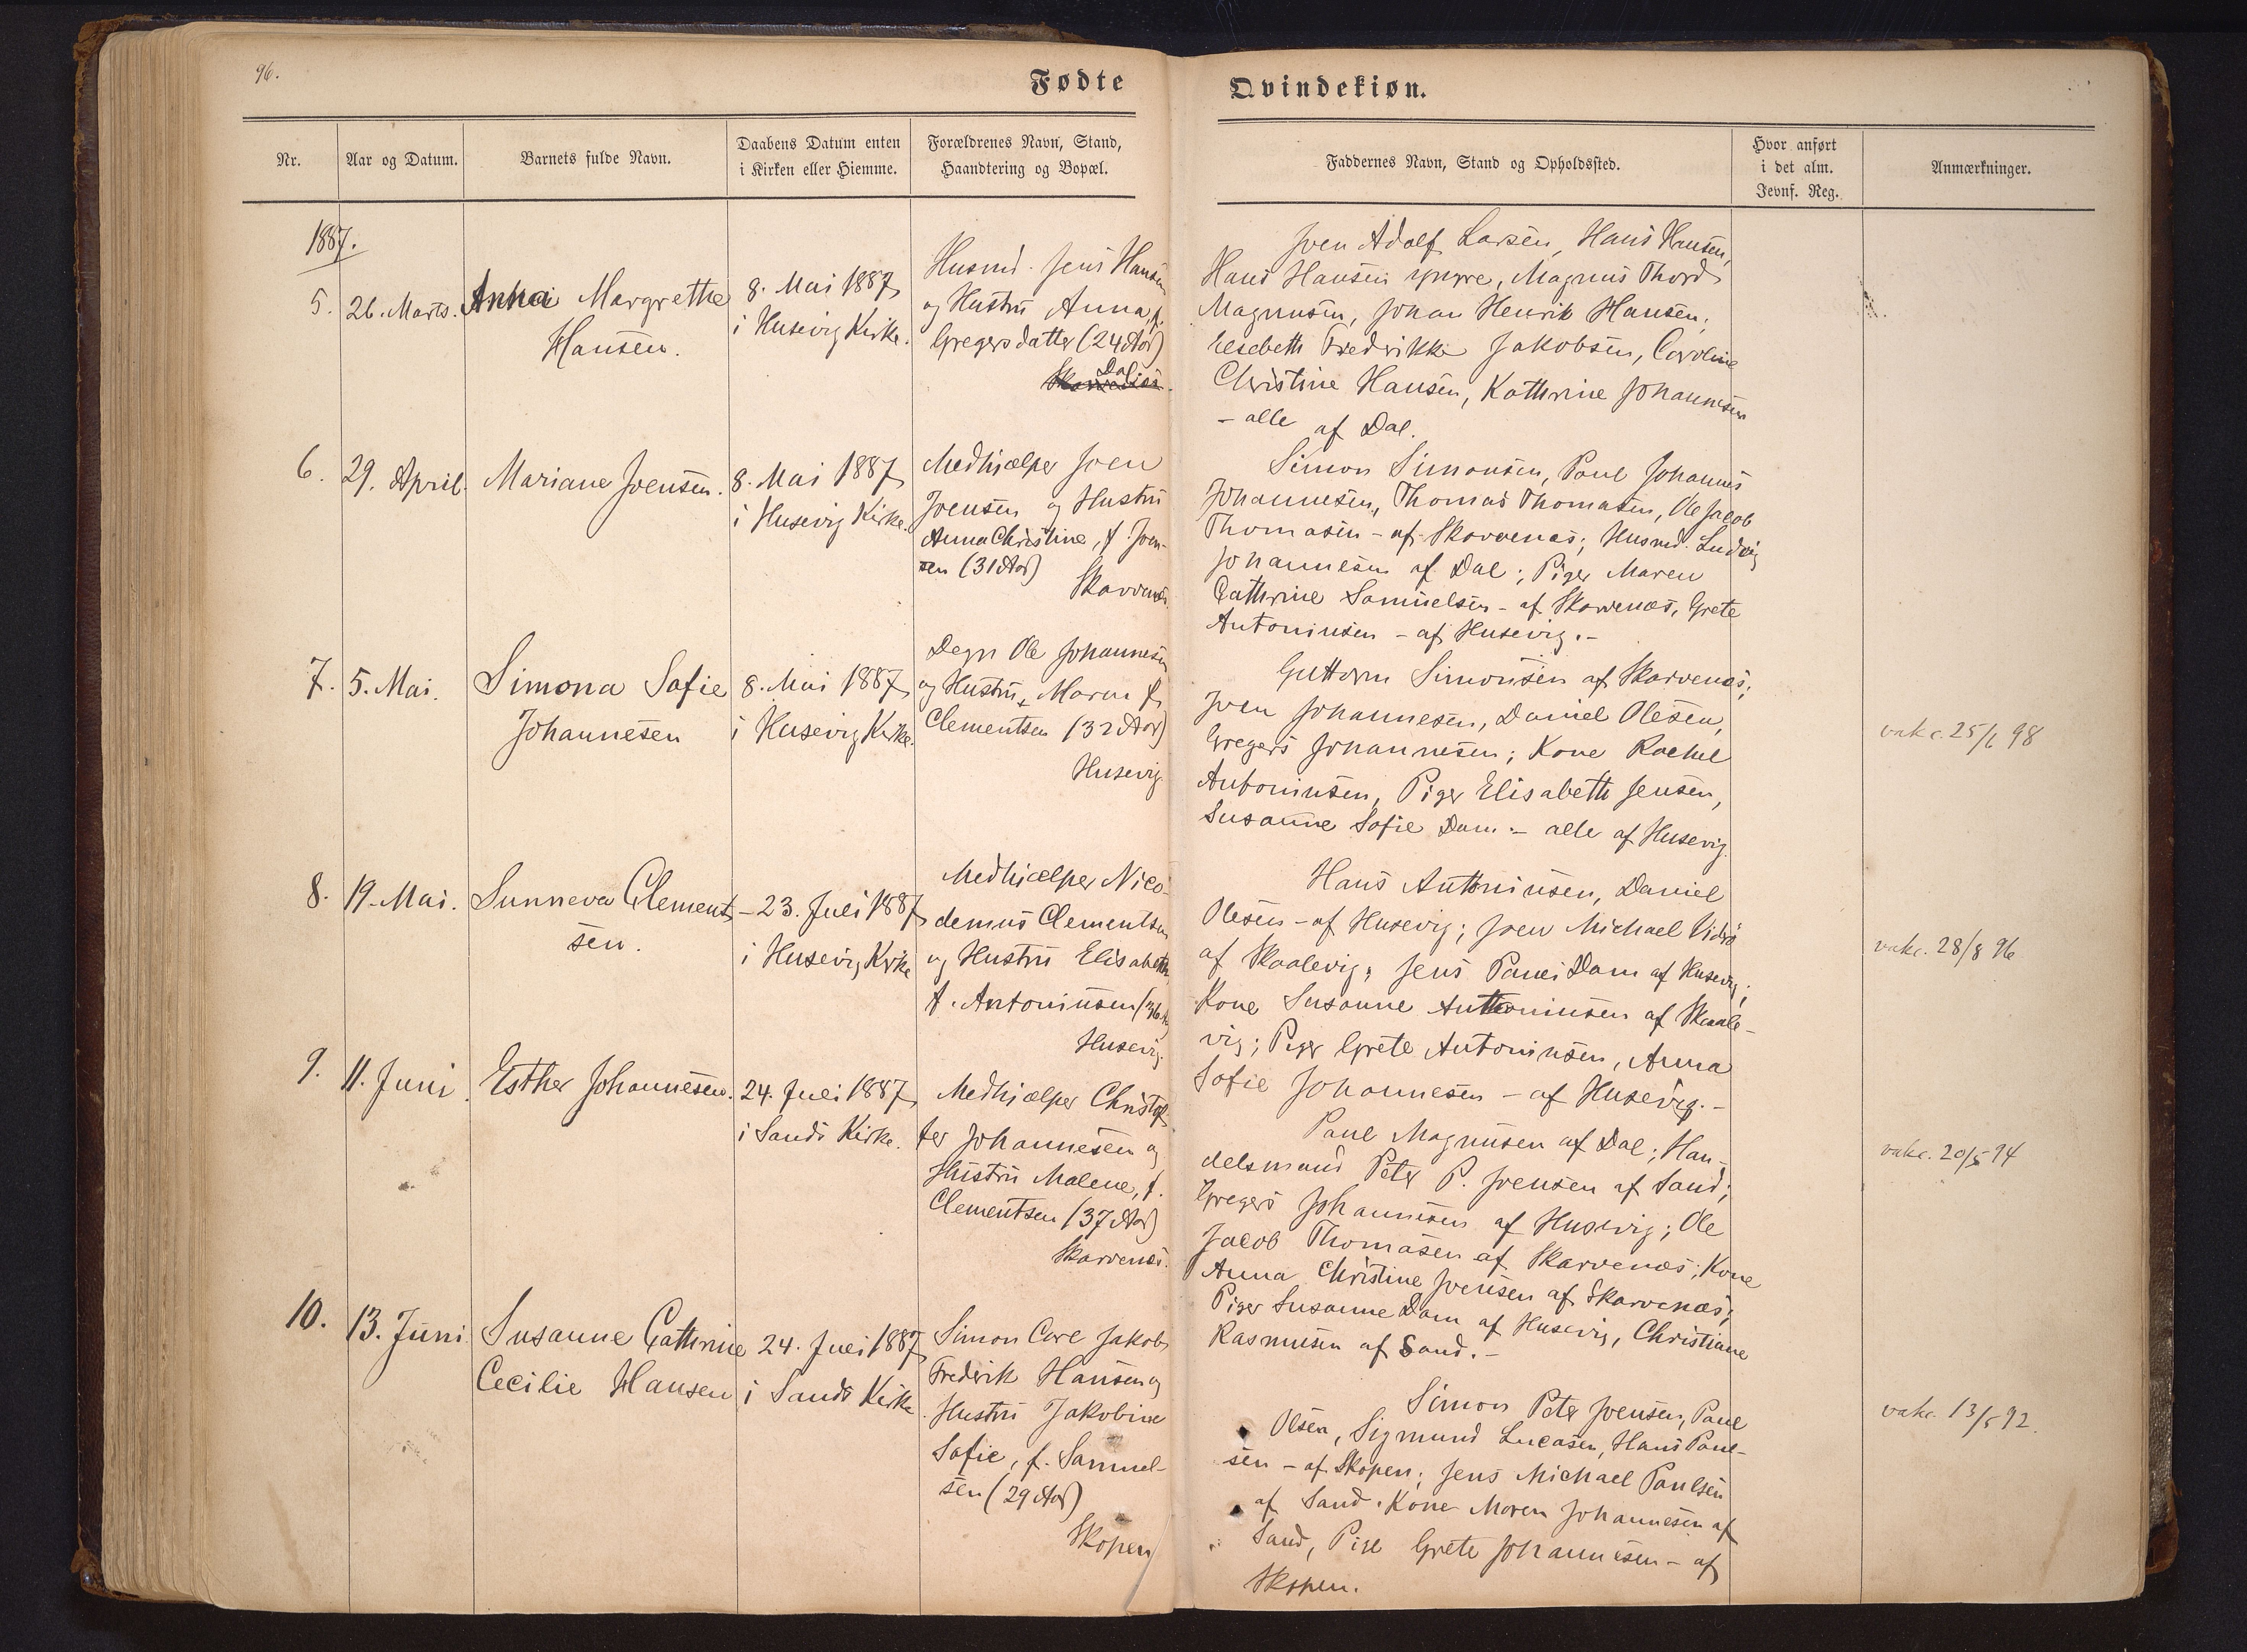 96.
Fødte
Qvindekiøn.
Nr.
Aar og Datum.
Barnets fulde Navn.
Daabens Datum enten
i Kirken eller Hiemme.
Forældrenes Navn, Stand,
Haandtering og Bopæl.
Faddernes Navn, Stand og Opholdssted.
Hvor anført
i det alm.
Jevnf. Reg.
Anmærkninger.
1887.
5.
26. Marts.
Anna Margrethe
Hansen.
8. Mai 1887
i Husevig Kirke.
Husmd. Jens Hansen
og Hustru Anna, f.
Gregersdatter (24 Aar)
Dal
Joen Adolf Larsen, Hans Hansen,
Hans Hansen yngre, Magnus Thord
Magnusen, Johan Henrik Hansen,
Elsebeth Fredrikke Jakobsen, Caroline
Christine Hansen, Kathrine Johannesen
- alle af Dal.
6.
29. April.
Mariane Joensen.
8. Mai 1887
i Husevig Kirke.
Medhjælper Joen
Joensen og Hustru
Anna Christine, f. Joen-
sen (31 Aar)
Skarvenæs.
Simon Simonsen, Poul Johannes
Johannesen, Thomas Thomasen, Ole Jacob
Thomasen - af Skarvenæs; Husmd. Ludvig
Johannesen af Dal; Piger Maren
Cathrine Samuelsen - af Skarvenæs, Grete
Antoniusen - af Husevig. -
7.
5. Mai.
Simona Sofie
Johannesen
8. Mai 1887
i Husevig Kirke.
Degn Ole Johannesen
og Hustru Maren f.
Clementsen (32 Aar)
Husevig
Guttorm Simonsen af Skarvenæs;
Joen Johannesen, Daniel Olesen,
Gregers Johannesen; Kone Rachel
Antoniusen, Piger Elisabeth Jensen,
Susanne Sofie Dam - alle af Husevig.
vakc. 25/6 98
8.
19. Mai.
Sunneva Clement-
sen.
23. Juli 1887
i Husevig Kirke
Medhjælper Nico-
demus Clementsen
og Hustru Elisabeth,
f. Antoniusen (36 A
Husevig.
Hans Antoniusen, Daniel
Olesen - af Husevig; Joen Michael Viderø
af Skaalevig; Jens Pauei Dam af Husevig;
Kone Susanne Antoniusen af Skaale-
vig; Piger Grete Antoniusen, Anna
Sofie Johannesen - af Husevig. -
vakc. 28/8 96
9.
11. Juni
Esther Johannesen.
24. Juli 1887
i Sands Kirke.
Medhjælper Christof-
fer Johannesen og
Hustru Malene, f.
Clementsen (37 Aar)
Skarvenæs.
Poul Magnusen af Dal; Han-
delsmand Peter P. Joensen af Sand;
Gregers Johannesen af Husevig; Ole
Jacob Thomasen af Skarvenæs; Kone
Anna Christine Joensen af Skarvenæs;
Piger Susanne Dam af Husevig, Christiane
Rasmusen af Sand. -
vakc. 20/5 94
10.
13. Juni
Susanne Cathrine
Cecilie Hansen
24. Juli 1887
i Sands Kirke
Simon Carl Jakob
Fredrik Hansen og
Hustru Jakobine
Sofie, f. Samuel-
sen (29 Aar)
Skopen
Simon Peter Joensen, Poul
Olsen, Sigmund Lucasen, Hans Poul-
sen - af Skopen; Jens Michael Poulsen
af Sand. Kone Maren Johannesen af
Sand, Pige Grete Johannesen - af
Skopen.
vakc. 13/5 92.